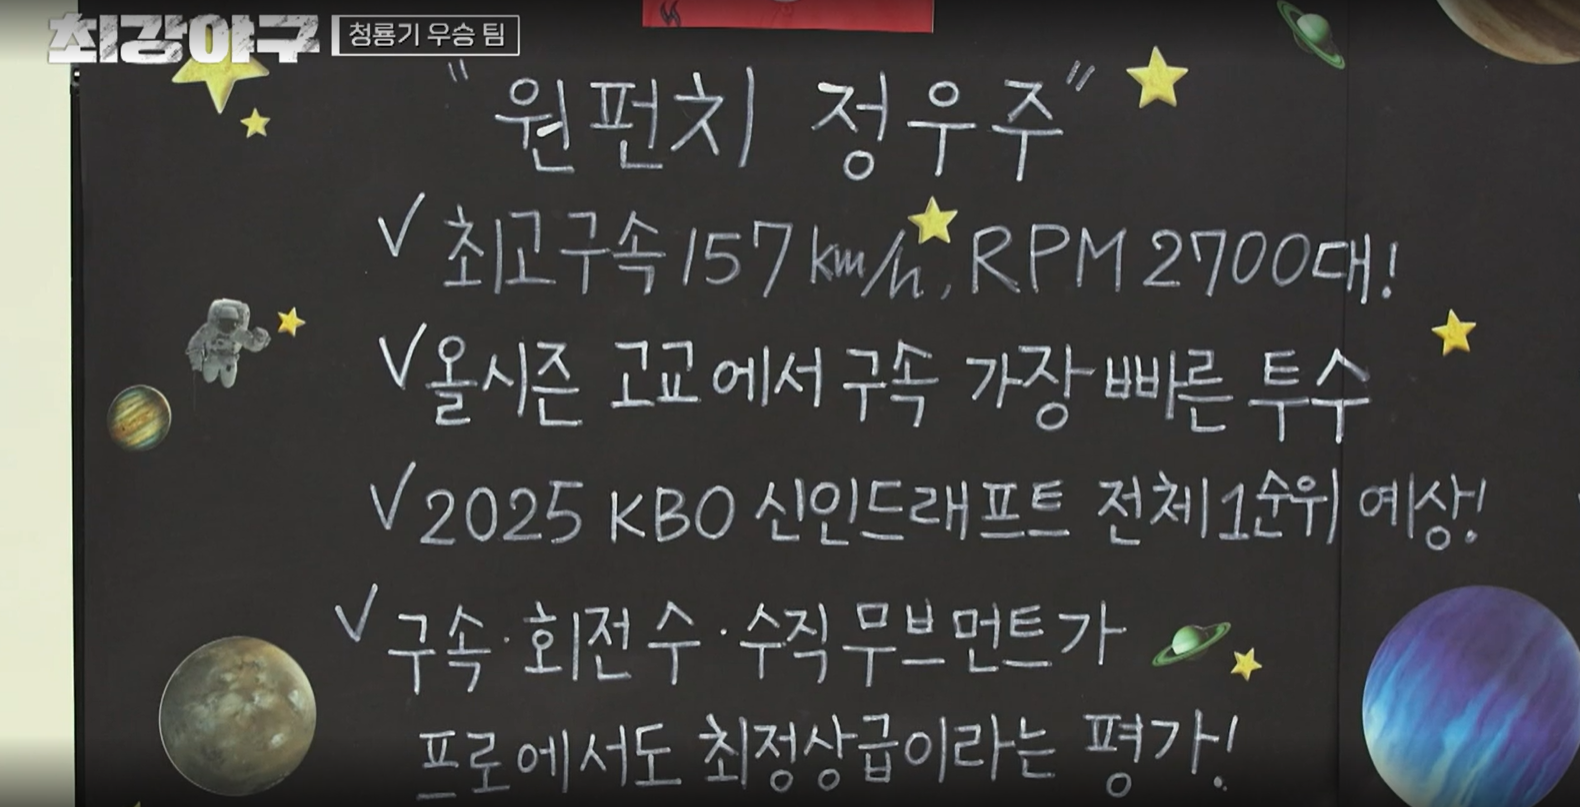 최강야구 청룡기 우승 팀
"원펀치 정우주"
√ 최고구속 157km/h, RPM 2700대!
√ 올시즌 고교에서 구속 가장 빠른 투수
√ 2025 KBO 신인드래프트 전체 1순위 예상!
√ 구속·회전수·수직무브먼트가
프로에서도 최정상급이라는 평가!